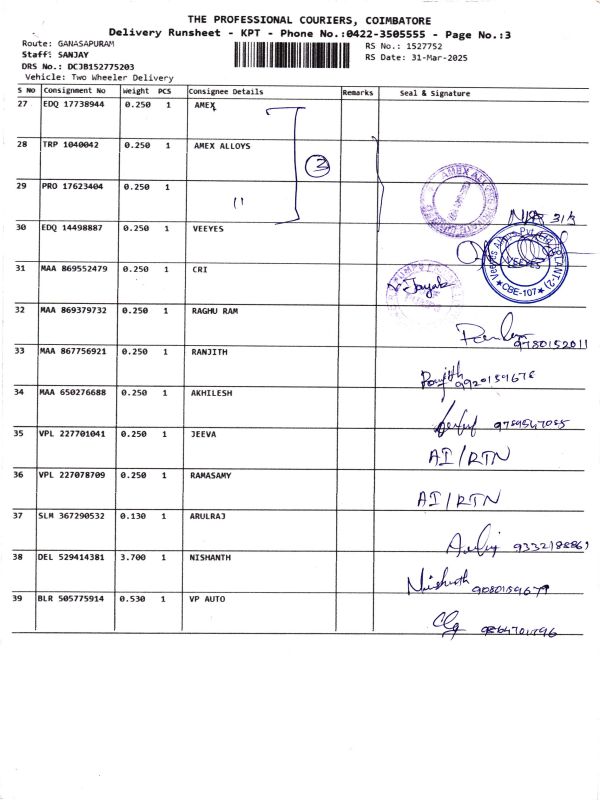 THE PROFESSIONAL COURIERS, COIMBATORE
Delivery Runsheet - KPT - Phone No.:0422-3505555 - Page No.:3
Route: GANASAPURAM
Staff: SANJAY
DRS No.: DCJB152775203
Vehicle: Two Wheeler Delivery
RS No.: 1527752
RS Date: 31-Mar-2025
S No Consignment No Weight PCS Consignee Details Remarks Seal & Signature
27 EDQ 17738944 0.250 1 AMEX
28 TRP 1040042 0.250 1 AMEX ALLOYS
3
29 PRO 17623404 0.250 1 "
AMEX ALLOYS
30 EDQ 14498887 0.250 1 VEEYES
VEEYES
CBE-107
31 MAA 869552479 0.250 1 CRI
32 MAA 869379732 0.250 1 RAGHU RAM
9780152011
33 MAA 867756921 0.250 1 RANJITH
Ranjith 9920159678
34 MAA 650276688 0.250 1 AKHILESH
9789547085
35 VPL 227701041 0.250 1 JEEVA AI/RTN
36 VPL 227078709 0.250 1 RAMASAMY AI/RTN
37 SLM 367290532 0.130 1 ARULRAJ
9332188869
38 DEL 529414381 3.700 1 NISHANTH
Nishanth 9080159679
39 BLR 505775914 0.530 1 VP AUTO